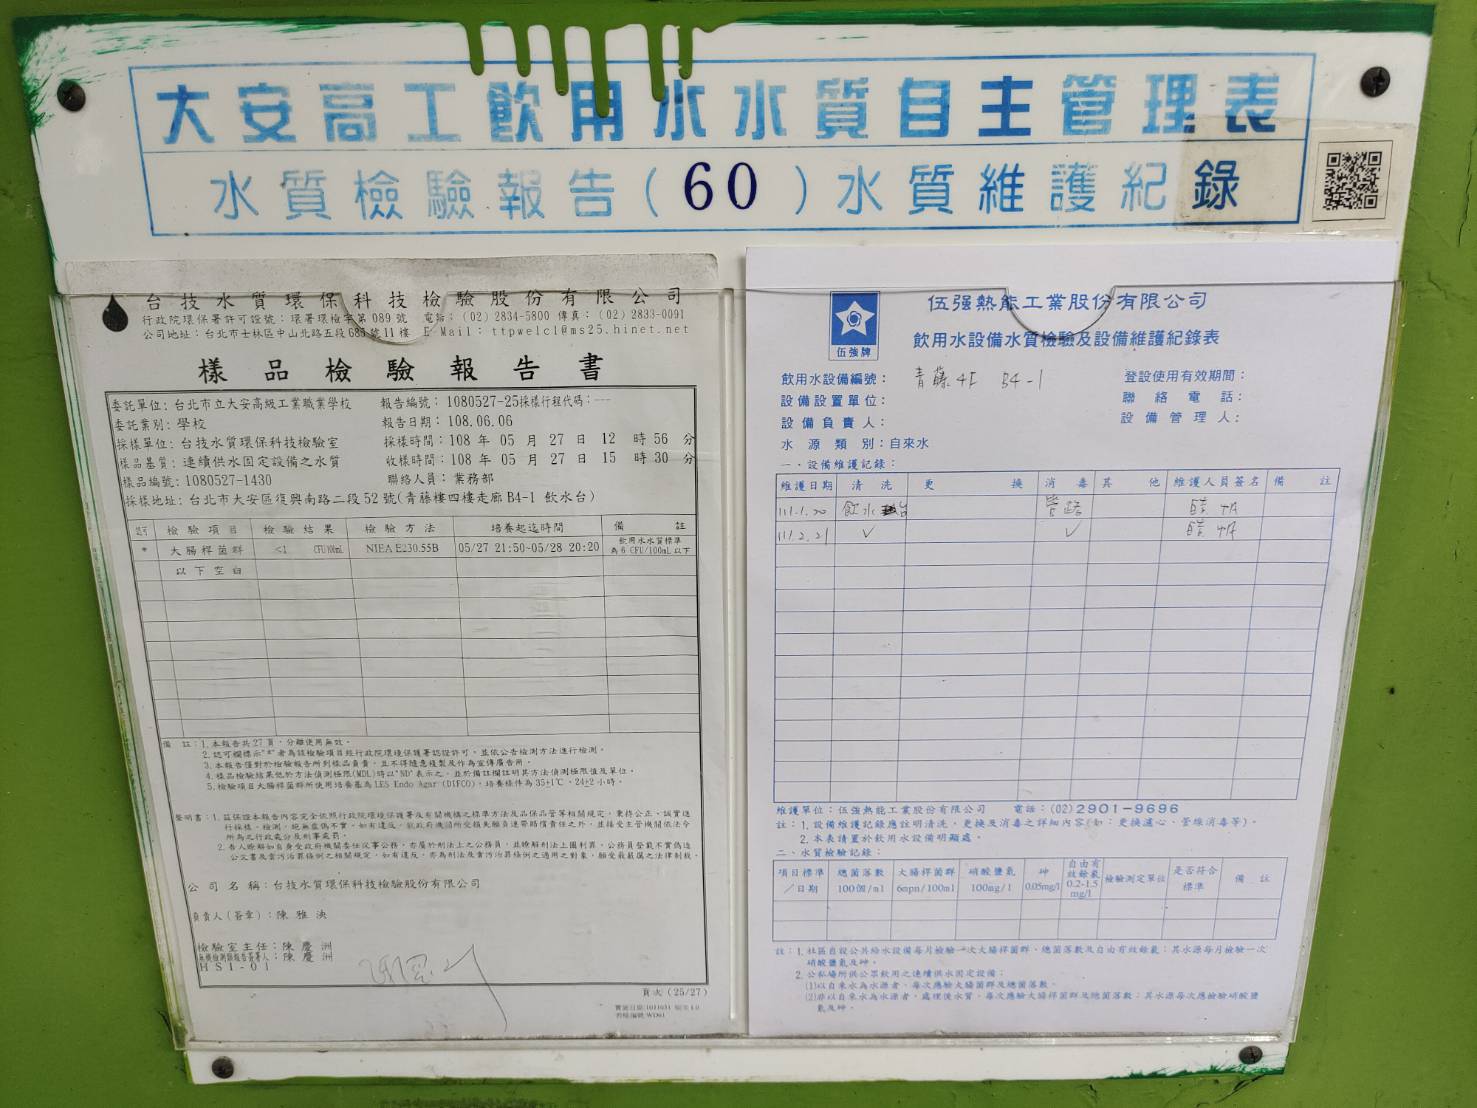 大安高工飲用水水質自主管理表
水質檢驗報告(60)水質維護紀錄
台技水質環保科技檢驗股份有限公司
行政院環保署許可證號：環署環檢字第089號 電話：(02)2834-5800 傳真：(02)2833-0091
公司地址：台北市士林區中山北路五段685號11樓 E-Mail：ttpwelcl@ms25.hinet.net
樣品檢驗報告書
委託單位：台北市立大安高級工業職業學校 報告編號：1080527-25採樣行程代碼：---
委託業別：學校 報告日期：108.06.06
採樣單位：台技水質環保科技檢驗室 採樣時間：108年05月27日12時56分
樣品基質：連續供水固定設備之水質 收樣時間：108年05月27日15時30分
樣品編號：1080527-1430 聯絡人員：業務部
採樣地址：台北市大安區復興南路二段52號(青藤樓四樓走廊B4-1 飲水台)
檢驗項目 檢驗結果 檢驗方法 培養起迄時間 備註
* 大腸桿菌群 <1 CFU/100mL NIEA E230.55B 05/27 21:50~05/28 20:20 飲用水水質標準為6 CFU/100mL以下
以下空白
備註：1.本報告共27頁，分離使用無效。
2.認可欄標示"*"者為該檢驗項目經行政院環境保護署認證許可，並依公告檢測方法進行檢測。
3.本報告僅對於檢驗報告所列樣品負責，且不得隨意複製及作為宣傳廣告用。
4.樣品檢驗結果低於方法偵測極限(MDL)時以"ND"表示之，並於備註欄註明其方法偵測極限值及單位。
5.檢驗項目大腸桿菌群所使用培養基為LES Endo Agar (DIFCO)，培養條件為35±1℃、24±2小時。
聲明書：1.茲保證本報告內容完全依照行政院環境保護署及有關機構之標準方法及品保品管等相關規定，秉持公正、誠實進
行採樣、檢測，絕無虛偽不實，如有違反，就政府機關所受損失願負連帶賠償責任之外，並接受主管機關依法令
所為之行政處分及刑事處罰。
2.吾人瞭解如自身受政府機關委任從事公務，亦屬於刑法上之公務員，並瞭解刑法上圖利罪、公務員登載不實偽造
公文書及貪污治罪條例之相關規定，如有違反，亦為刑法及貪污治罪條例之適用之對象，願受最嚴厲之法律制裁。
公司名稱：台技水質環保科技檢驗股份有限公司
負責人(簽章)：陳雅泱
檢驗室主任：陳慶洲
無機檢測類報告簽署人：陳慶洲
HSI-01
頁次(25/27)
伍強牌
伍强熱能工業股份有限公司
飲用水設備水質檢驗及設備維護紀錄表
飲用水設備編號：青藤4F B4-1 登設使用有效期間：
設備設置單位： 聯絡電話：
設備負責人： 設備管理人：
水源類別：自來水
一、設備維護記錄：
維護日期 清洗 更換 消毒 其他 維護人員簽名 備註
111.1.20 飲水 管路
111.2.21 ✓ ✓
維護單位：伍強熱能工業股份有限公司 電話：(02)2901-9696
註：1.設備維護記錄應註明清洗、更換及消毒之詳細內容(如：更換濾心、管線消毒等)。
2.本表請置於飲用水設備明顯處。
二、水質檢驗記錄：
項目標準／日期 總菌落數100個/ml 大腸桿菌群6mpn/100ml 硝酸鹽氮100mg/l 砷0.05mg/l 自由有效餘氯0.2-1.5mg/l 檢驗測定單位 是否符合標準 備註
註：1.社區自設公共給水設備每月檢驗一次大腸桿菌群、總菌落數及自由有效餘氯；其水源每月檢驗一次
硝酸鹽氮及砷。
2.公私場所供公眾飲用之連續供水固定設備：
(1)以自來水為水源者，每次應驗大腸桿菌群及總菌落數。
(2)非以自來水為水源者，處理後水質，每次應驗大腸桿菌群及總菌落數；其水源每次應檢驗硝酸鹽
氮及砷。